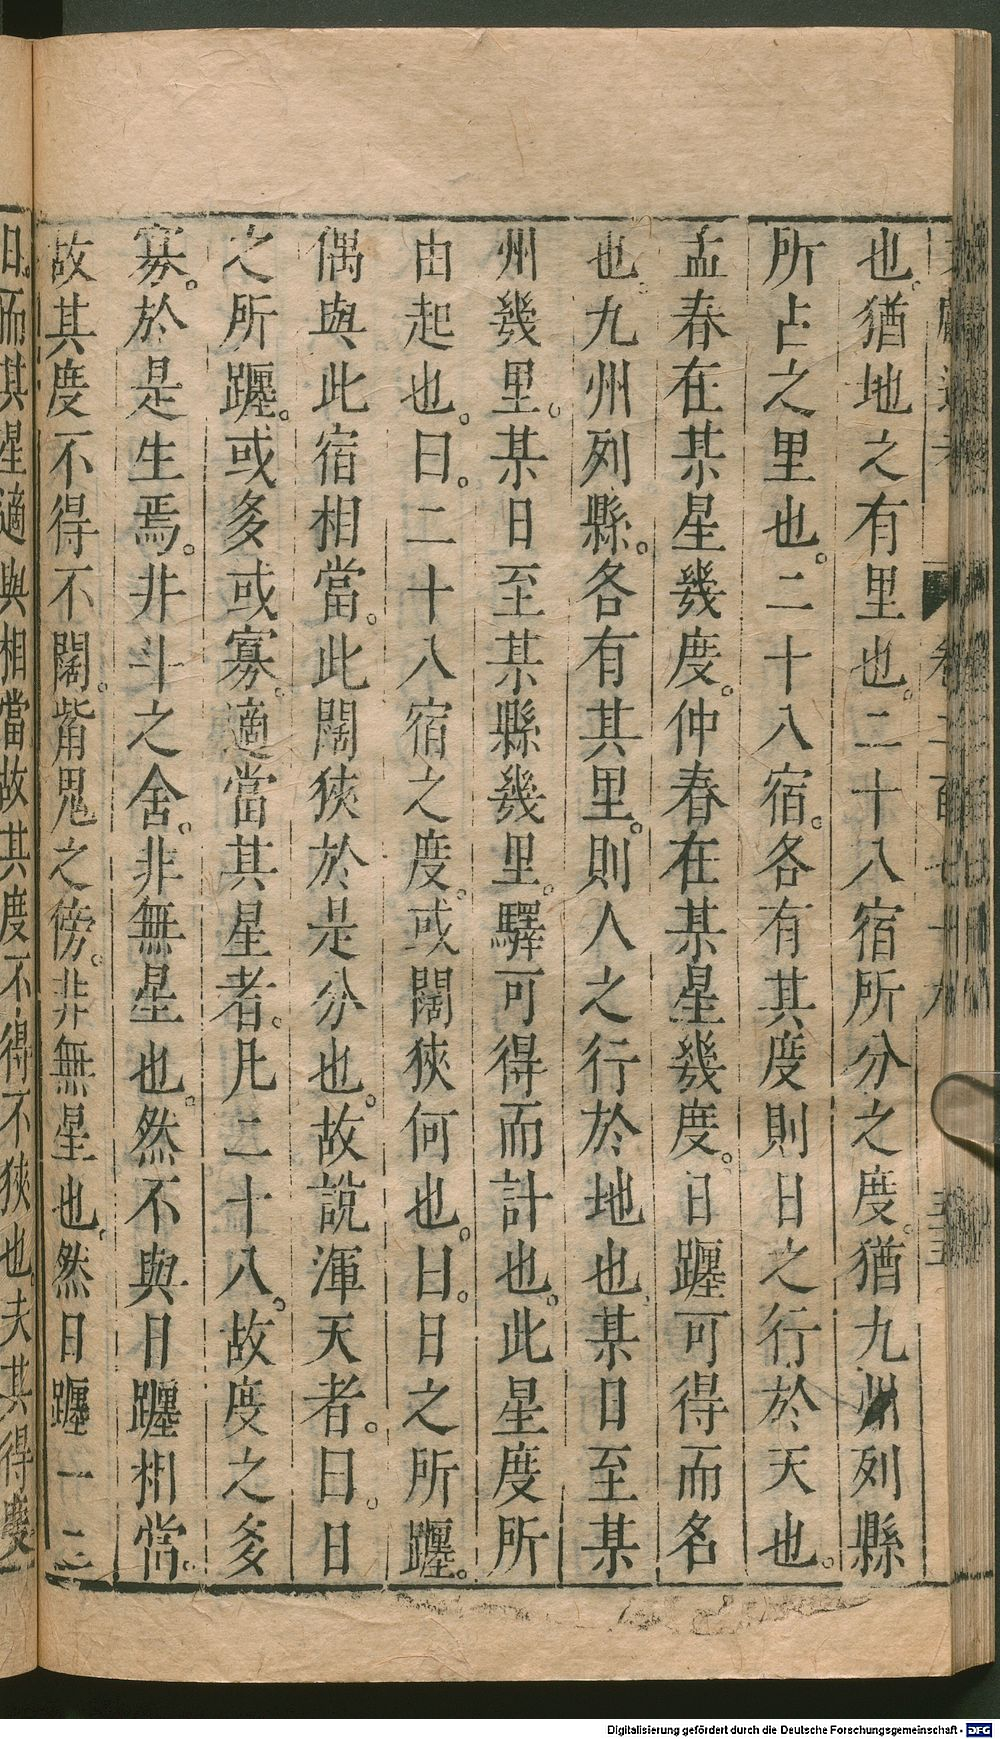 也。猶地之有里也。二十八宿所分之度。猶九州列縣
所占之里也。二十八宿。各有其度則日之行於天也。
孟春在某星幾度。仲春在某星幾度。日躔可得而名
也。九州列縣。各有其里。則人之行於地也。某日至某
州幾里。某日至某縣幾里。驛可得而計也。此星度所
由起也。曰。二十八宿之度。或闊狹何也。曰。日之所躔。
偶與此宿相當。此闊狹於是分也。故說渾天者。曰。日
之所躔。或多或寡。適當其星者。凡二十八。故度之多
寡。於是生焉。非斗之舍。非無星也。然不與日躔相當。
故其度不得不闊。觜鬼之傍。非無星也。然日躔一二
日。而其星適與相當故其度不得不狹也。夫其得
Digitalisierung gefördert durch die Deutsche Forschungsgemeinschaft - DFG